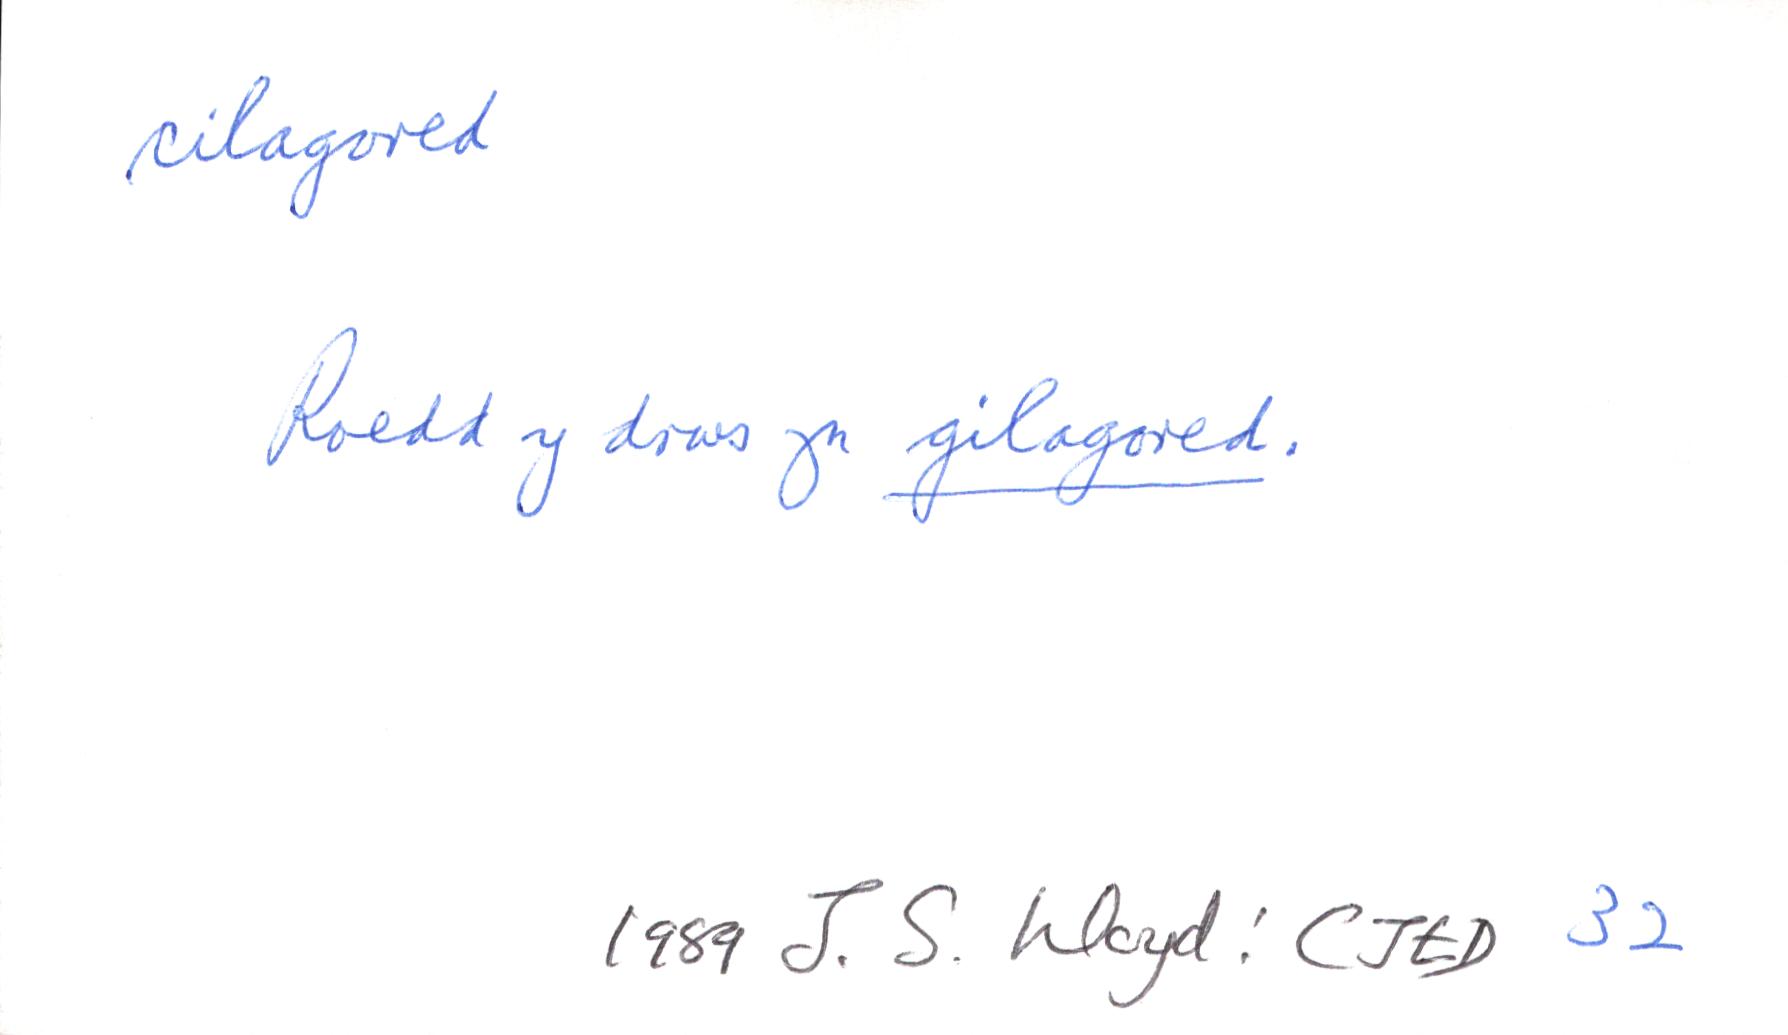 cilagored
Roedd y drws yn gilagored.
1989 J. S. Lloyd: CJED 32